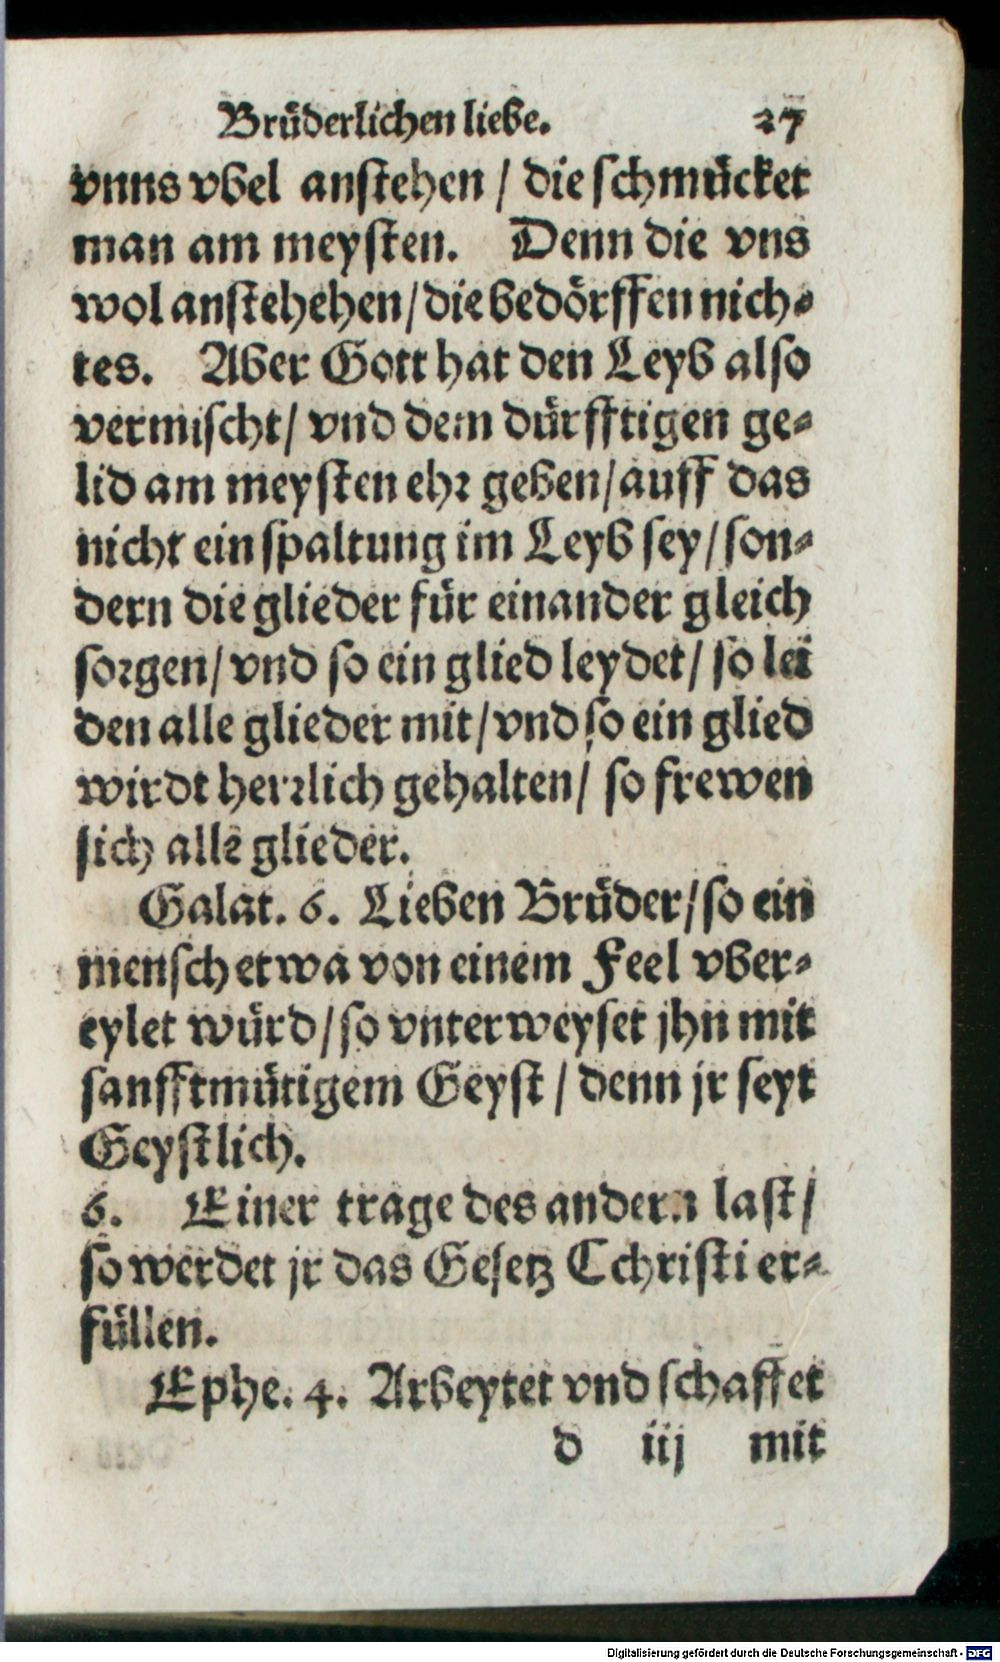 Brüderlichen liebe. 27
vnns vbel anstehen / die schmücket
man am meysten. Denn die vns
wol anstehehen / die bedörffen nich⸗
tes. Aber Gott hat den Leyb also
vermischt / vnd dem dürfftigen ge⸗
lid am meysten ehr geben / auff das
nicht ein spaltung im Leyb sey / son⸗
dern die glieder für einander gleich
sorgen / vnd so ein glied leydet / so lei
den alle glieder mit / vnd so ein glied
wirdt herrlich gehalten / so frewen
sich alle glieder.
Galat. 6. Lieben Brüder / so ein
mensch etwa von einem Feel vber⸗
eylet würd / so vnterweyset jhn mit
sanfftmütigem Geyst / denn jr seyt
Geystlich.
6. Einer trage des andern last /
so werdet jr das Gesetz Cchristi er⸗
füllen.
Ephe. 4. Arbeytet vnd schaffet
d iij mit
Digitalisierung gefördert durch die Deutsche Forschungsgemeinschaft - DFG